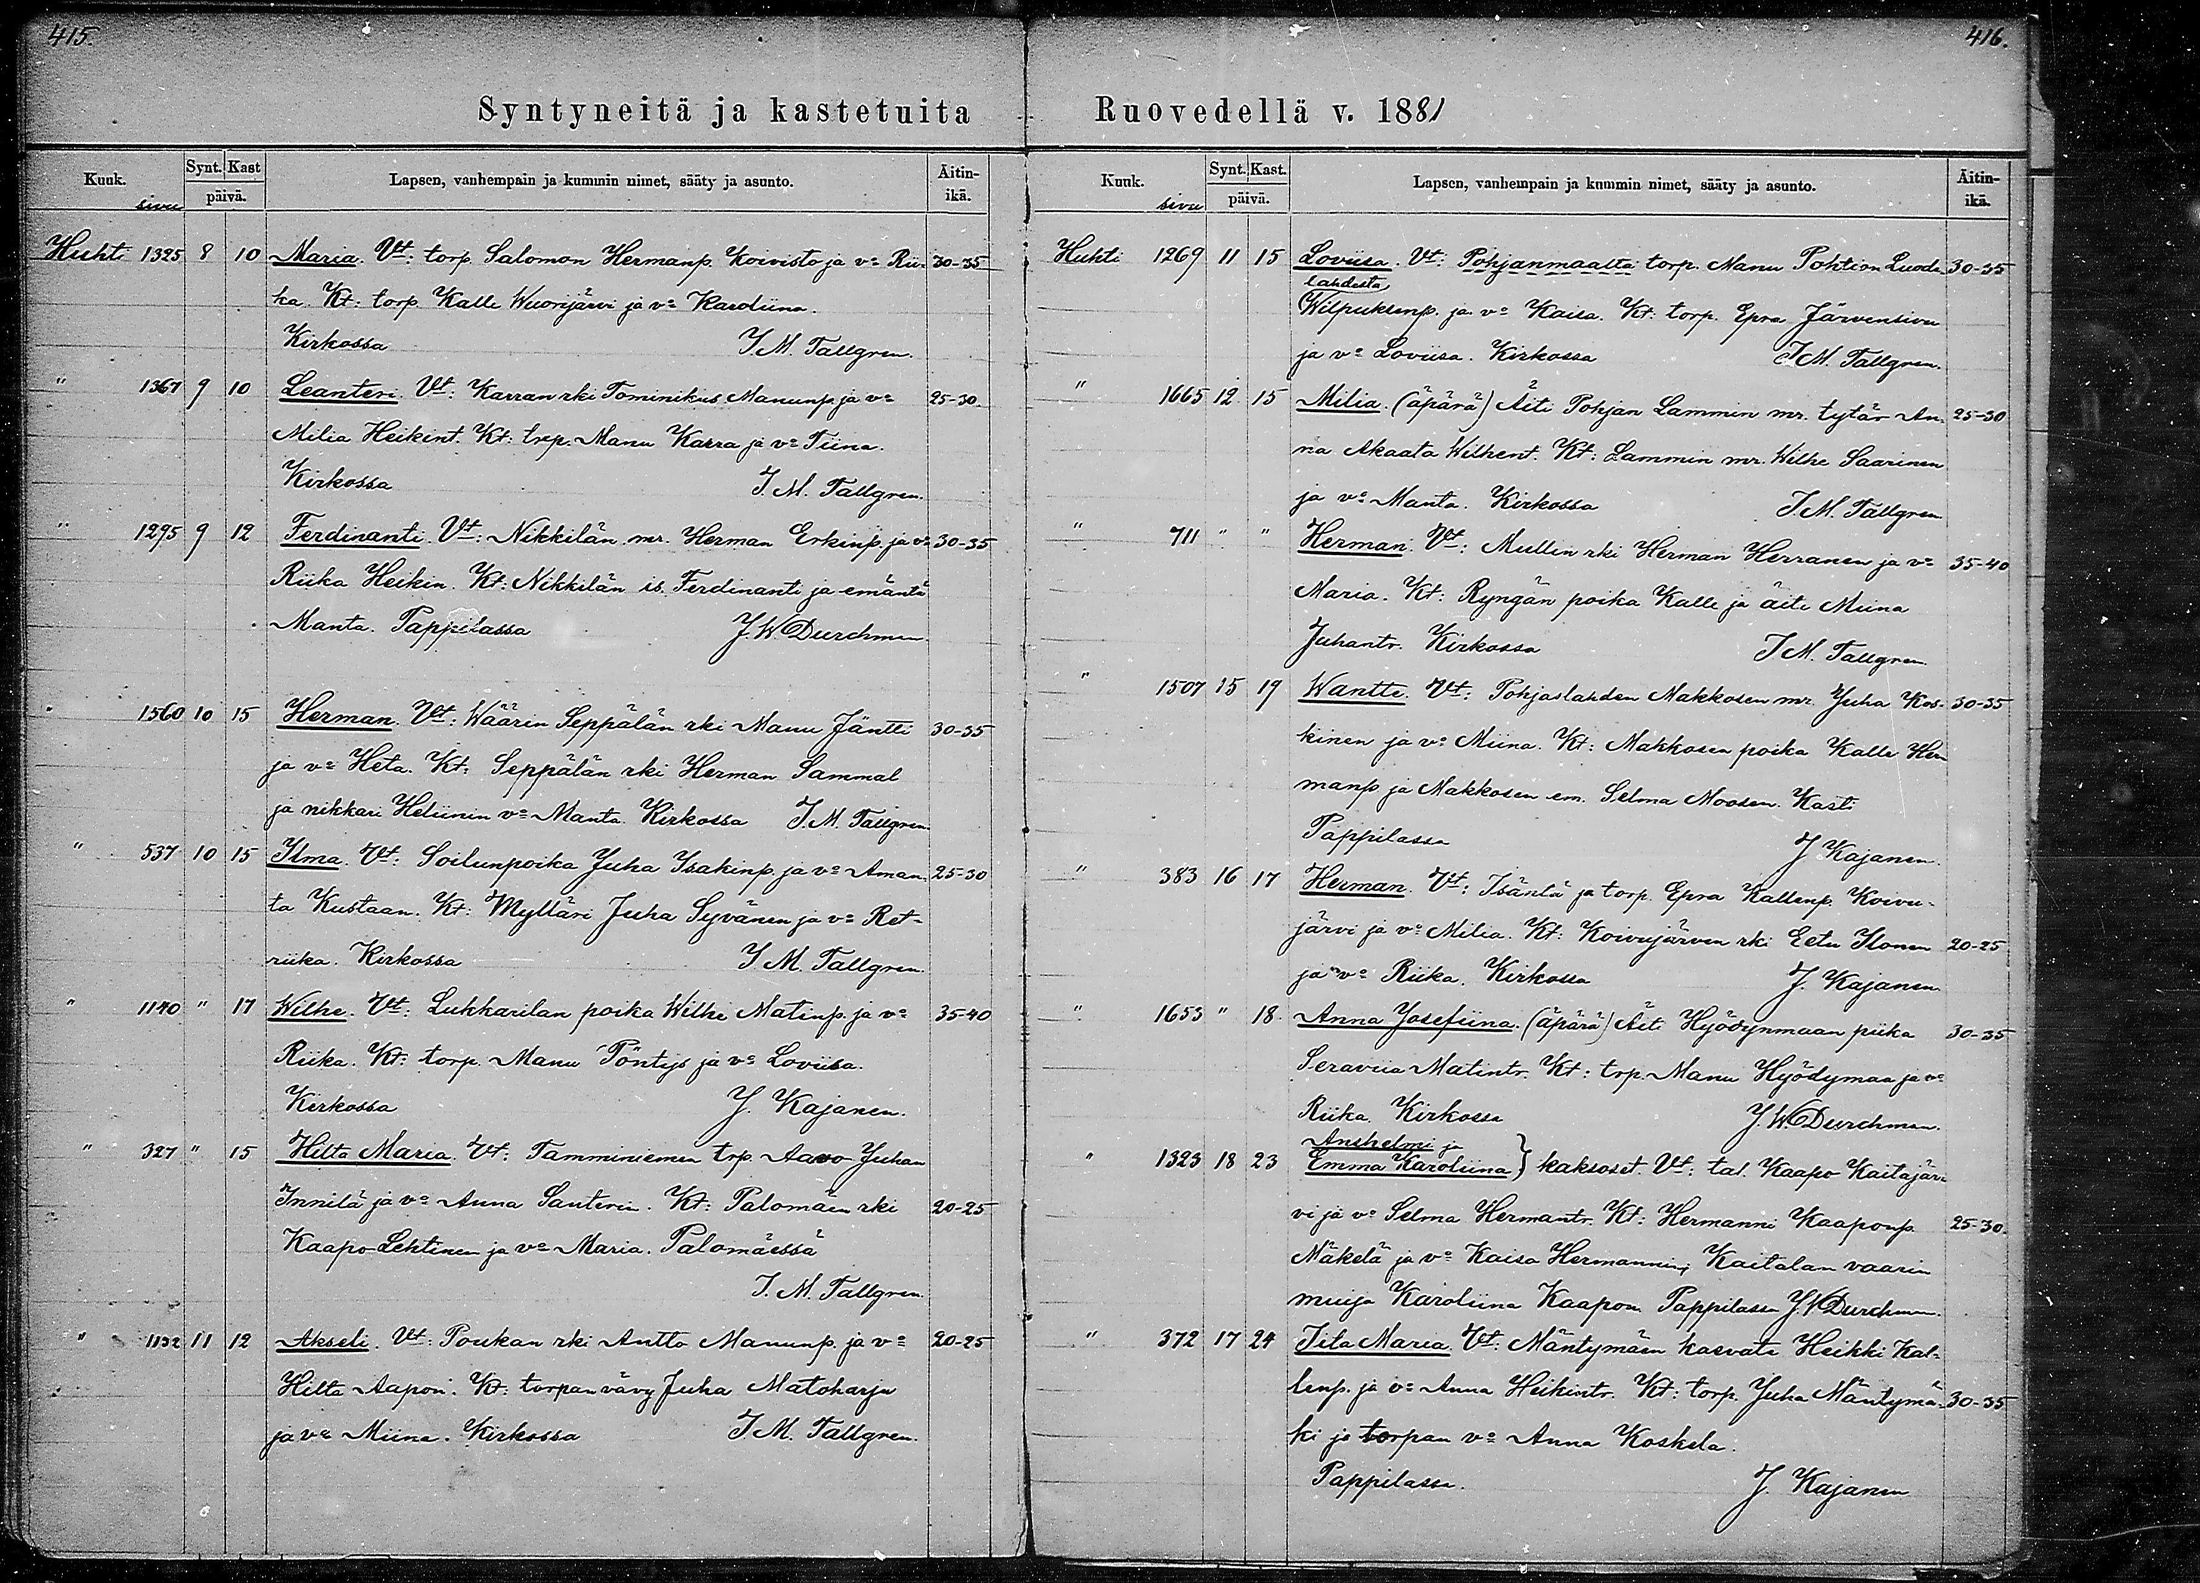 415.
Syntyneitä ja kastetuita
Kuuk. sivu Synt. Kast päivä. Lapsen, vanhempain ja kummin nimet, sääty ja asunto. Äitin-ikä.
Huhti 1325 8 10 Maria. Vt: torp. Salomon Hermanp. Koivisto ja vo Rii- 30-35
ka. Kt: torp. Kalle Wuorijärvi ja vo Karoliina.
Kirkossa J. M. Tallgren.
" 1367 9 10 Leanteri. Vt: Karran rki Tominikus Manunp. ja vo 25-30.
Milia Heikint. Kt: trp. Manu Karra ja vo Tiina.
Kirkossa J. M. Tallgren.
" 1295 9 12 Ferdinanti. Vt: Nikkilän mr. Herman Erkinp. ja vo 30-35
Riika Heikin. Kt: Nikkilän is. Ferdinanti ja emäntä
Manta. Pappilassa J. W Durchman
" 1560 10 15 Herman. Vt: Wäärin Seppälän rki Manu Jäntti 30-35
ja vo Heta. Kt: Seppälän rki Herman Sammal
ja nikkari Heliinin vo Manta. Kirkossa J. M. Tallgren.
" 537 10 15 Ilma. Vt: Soilunpoika Juha Isakinp. ja vo Aman- 25-30
ta Kustaan. Kt: Mylläri Juha Syvänen ja vo Ret-
riika. Kirkossa J M. Tallgren.
" 1140 " 17 Wilhe. Vt: Lukkarilan poika Wilhe Matinp. ja vo 35-40
Riika. Kt: torp. Manu Pöntys ja vo Loviisa.
Kirkossa J. Kajanen.
" 327 " 15 Hilta Maria. Vt: Tamminiemen trp. Aaro Juhan
Innilä ja vo Anna Santerin. Kt: Palomäen rki 20-25
Kaapo Lehtinen ja vo Maria. Palomäessä
J. M. Tallgren.
" 1132 11 12 Akseli. Vt: Poukan rki Antto Manunp. ja vo 20-25
Hilta Aapon. Kt: torpan vävy Juha Matoharju
ja vo Miina. Kirkossa J M. Tallgren.
416.
Ruovedellä v. 1881
Kuuk. sivu Synt. Kast. päivä. Lapsen, vanhempain ja kummin nimet, sääty ja asunto. Äitin-ikä.
Huhti 1269 11 15 Loviisa. Vt: Pohjanmaalta torp. Manu Pohtion Luode- 30-35
lahdesta
Wilpuksenp. ja vo Kaisa. Kt: torp. Epra Järvensivu
ja vo Loviisa. Kirkossa J M. Tallgren.
" 1665 12 15 Milia. (äpärä) Äiti Pohjan Lammin mr. tytär An- 25-30
na Akaata Wilhent. Kt: Lammin mr. Wilhe Saarinen
ja vo Manta. Kirkossa J. M. Tallgren
" 711 " " Herman. Vt: Mullin rki Herman Herranen ja vo 35-40
Maria. Kt: Ryngän poika Kalle ja äiti Miina
Juhantr. Kirkossa J M. Tallgren
" 1507 15 19 Wantte. Vt: Pohjaslahden Makkosen mr. Juha Kos- 30-35
kinen ja vo Miina. Kt: Makkosen poika Kalle Her
manp ja Makkosen em. Selma Moosen. Kasti
Pappilassa J Kajanen.
" 383 16 17 Herman. Vt: Isäntä ja torp. Epra Kallenp. Koivu-
järvi ja vo Milia. Kt: Koivujärven rki Eetu Ilonen 20-25
ja vo Riika. Kirkossa J. Kajanen
" 1653 " 18. Anna Josefiina. (äpärä) Äit. Hyödynmaan piika 30-35
Seraviia Matintr. Kt: trp. Manu Hyödymaa ja vo
Riika. Kirkossa J. W Durchman.
Anshelmi ja
" 1323 18 23 Emma Karoliina } kaksoset. Vt: tal. Kaapo Kaitajär-
vi ja vo Selma Hermantr. Kt: Hermanni Kaaponp. 25-30.
Mäkelä ja vo Kaisa Hermannin, Kaitalan vaarin
muija Karoliina Kaapon. Pappilassa J W Durchman.
" 372 17 24 Iita Maria. Vt: Mäntymäen kasvati Heikki Kal-
lenp. ja vo Anna Heikintr. Kt: torp. Juha Mäntymä- 30-35
ki ja torpan vo Anna Koskela.
Pappilassa. J. Kajanen